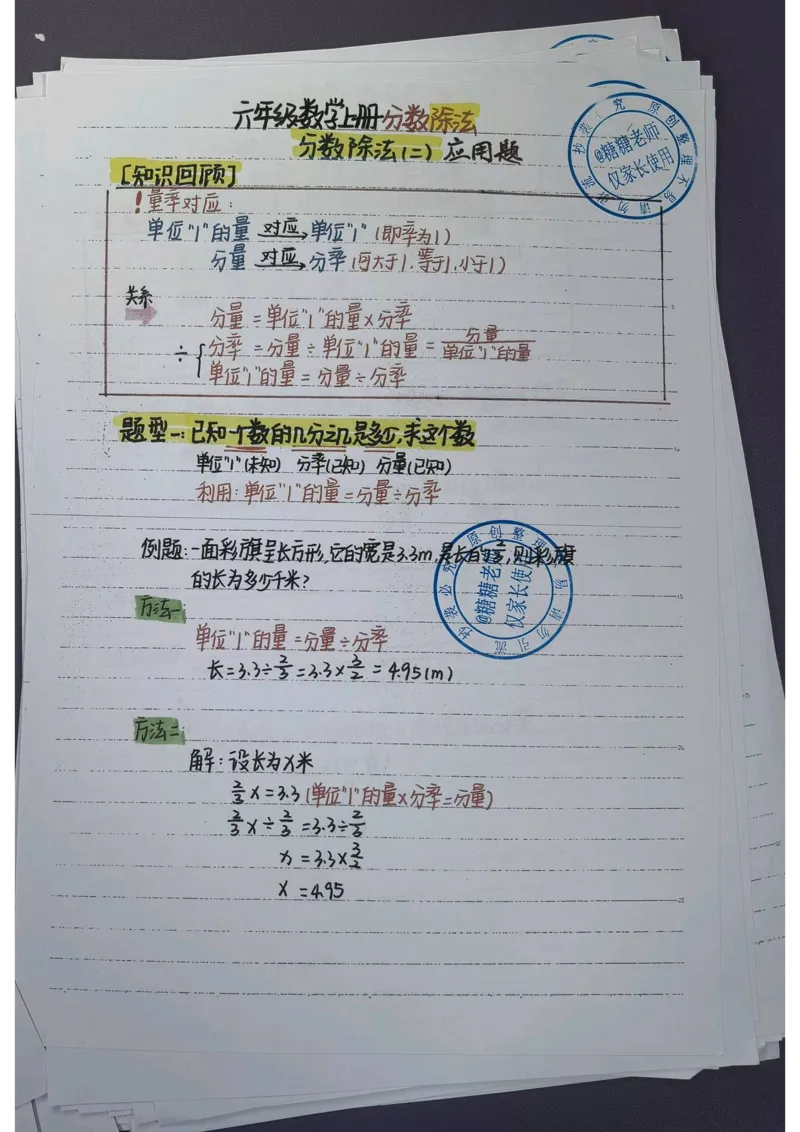 六年级数学上册分数除法
分数除法(二)应用题
[知识回顾]
!量率对应:
单位"1"的量 对应→ 单位"1"(即率为1)
分量 对应→ 分率(可大于1,等于1,小于1)
关系
分量=单位"1"的量×分率
÷{分率=分量÷单位"1"的量=分量/单位"1"的量
单位"1"的量=分量÷分率
题型一:已知一个数的几分之几是多少,求这个数
单位"1"(未知) 分率(已知) 分量(已知)
利用:单位"1"的量=分量÷分率
例题:一面彩旗呈长方形,它的宽是3.3m,是长的2/3,则彩旗
的长为多少千米?
方法一:
单位"1"的量=分量÷分率
长=3.3÷2/3=3.3×3/2=4.95(m)
方法二:
解:设长为x米
2/3x=3.3(单位"1"的量×分率=分量)
2/3x÷2/3=3.3÷2/3
x=3.3×3/2
x=4.95
@糖糖老师
仅家长使用
原创整理不易请勿引流抄袭必究
@糖糖老
仅家长使